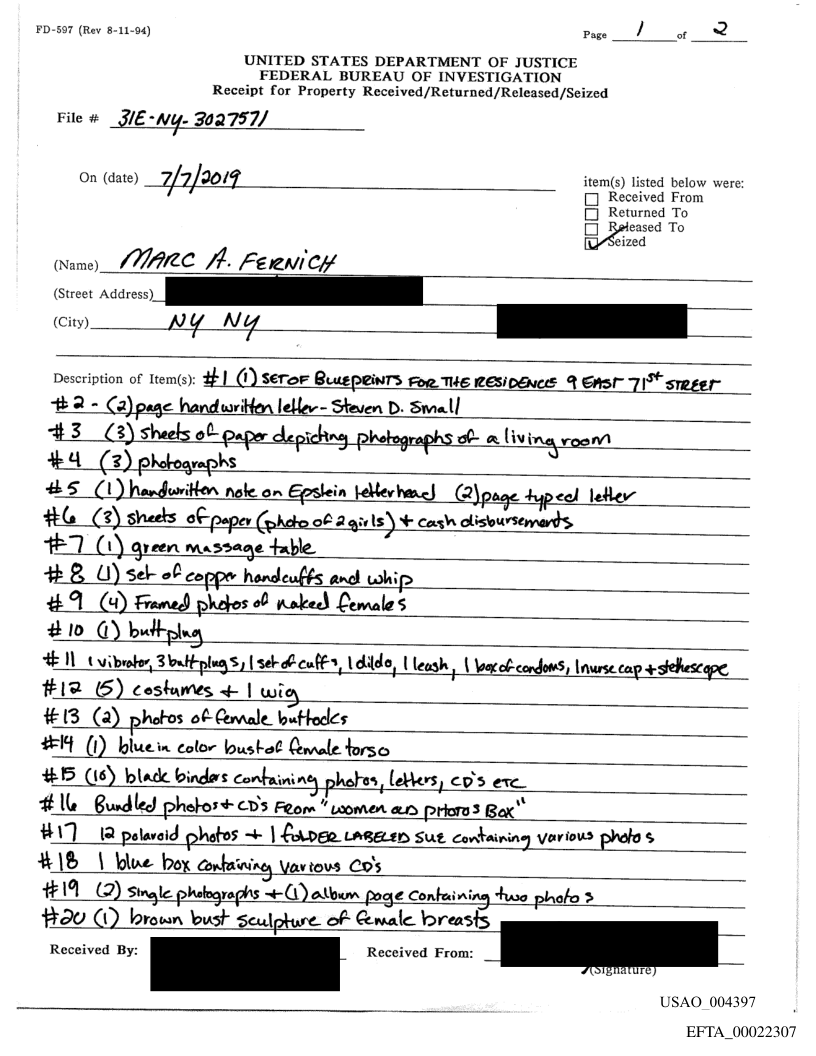 FD-597 (Rev 8-11-94)
Page 1 of 2
UNITED STATES DEPARTMENT OF JUSTICE
FEDERAL BUREAU OF INVESTIGATION
Receipt for Property Received/Returned/Released/Seized
File # 31E-NY-3027571
On (date) 7/7/2019
item(s) listed below were:
Received From
Returned To
Released To
Seized
(Name) MARC A. FERNICH
(Street Address)
(City) NY NY
Description of Item(s): #1 (1) SET OF BLUEPRINTS FOR THE RESIDENCE 9 EAST 71st STREET
#2 - (2) page handwritten letter - Steven D. Small
#3 (3) sheets of paper depicting photographs of a living room
#4 (3) photographs
#5 (1) handwritten note on Epstein letterhead (2) page typed letter
#6 (3) sheets of paper (photo of 2 girls) + cash disbursements
#7 (1) green massage table
#8 (1) set of copper handcuffs and whip
#9 (4) Framed photos of naked females
#10 (1) buttplug
#11 1 vibrator, 3 buttplugs, 1 set of cuffs, 1 dildo, 1 leash, 1 box of condoms, 1 nurse cap + stethescope
#12 (5) costumes + 1 wig
#13 (2) photos of female buttocks
#14 (1) blue in color bust of female torso
#15 (16) black binders containing photos, letters, CD's ETC
#16 Bundled photos + CD's From "WOMEN PHOTOS BOX"
#17 12 polaroid photos + 1 FOLDER LABELED SUE containing various photos
#18 1 blue box containing various CD's
#19 (2) single photographs + (1) album page containing two photos
#20 (1) brown bust sculpture of female breasts
Received By:
Received From:
(Signature)
USAO_004397
EFTA_00022307